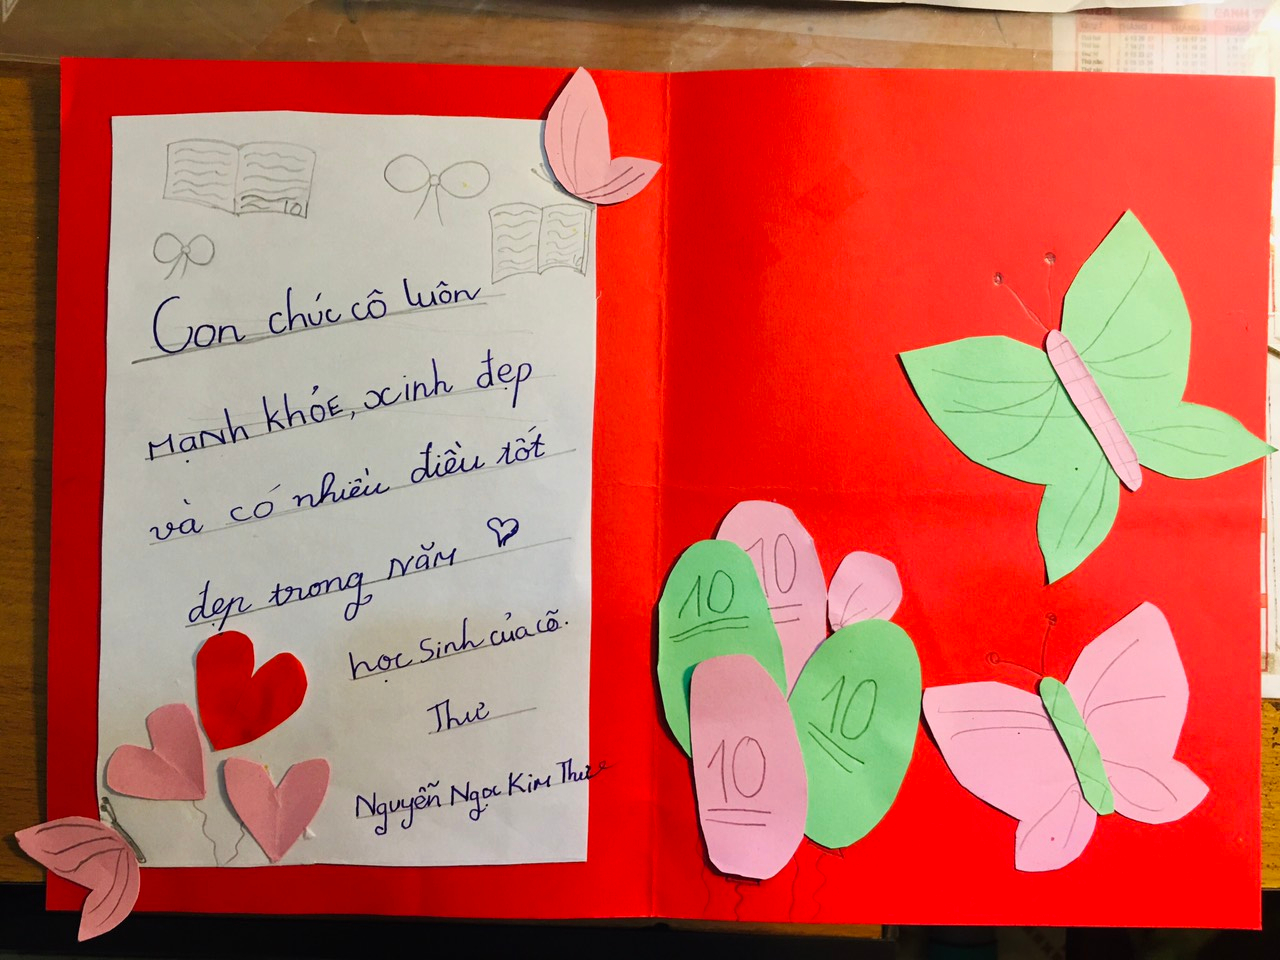 10
10
Con chúc cô luôn
mạnh khỏe, xinh đẹp
và có nhiều điều tốt
đẹp trong năm
học sinh của cô.
Thư
Nguyễn Ngọc Kim Thư
10
10
10
10